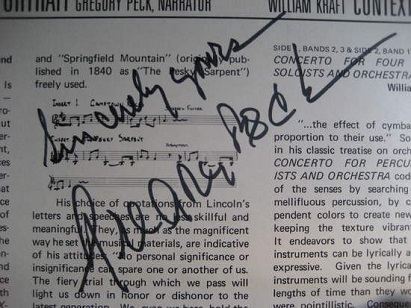 PORTRAIT GREGORY PECK, NARRATOR
WILLIAM KRAFT CONTEX
and "Springfield Mountain" (originally pub-
lished in 1840 as "The Pesky Sarpent")
freely used.
Sincerely yours
Gregory Peck
His choice of quotations from Lincoln's
letters and speeches are both skillful and
meaningful. They, as much as the magnificent
way he set the musical materials, are indicative
of his attitudes. "No personal significance or
insignificance can spare one or another of us.
The fiery trial through which we pass will
light us down in honor or dishonor to the
latest generation. We even we here hold the
SIDE 1, BANDS 2, 3 & SIDE 2, BAND 1
CONCERTO FOR FOUR
SOLOISTS AND ORCHESTRA
Willia
"...the effect of cymba
proportion to their use." So
in his classic treatise on orch
CONCERTO FOR PERCU
ISTS AND ORCHESTRA cod
of the senses by searching
mellifluous percussion, by c
pendent colors to create new
keeping the texture vibrant
It endeavors to show that
instruments can be lyrically a
expressive. Given the lyrica
instruments will be sounding f
lengths of time than they w
were pointillistic. Conseque